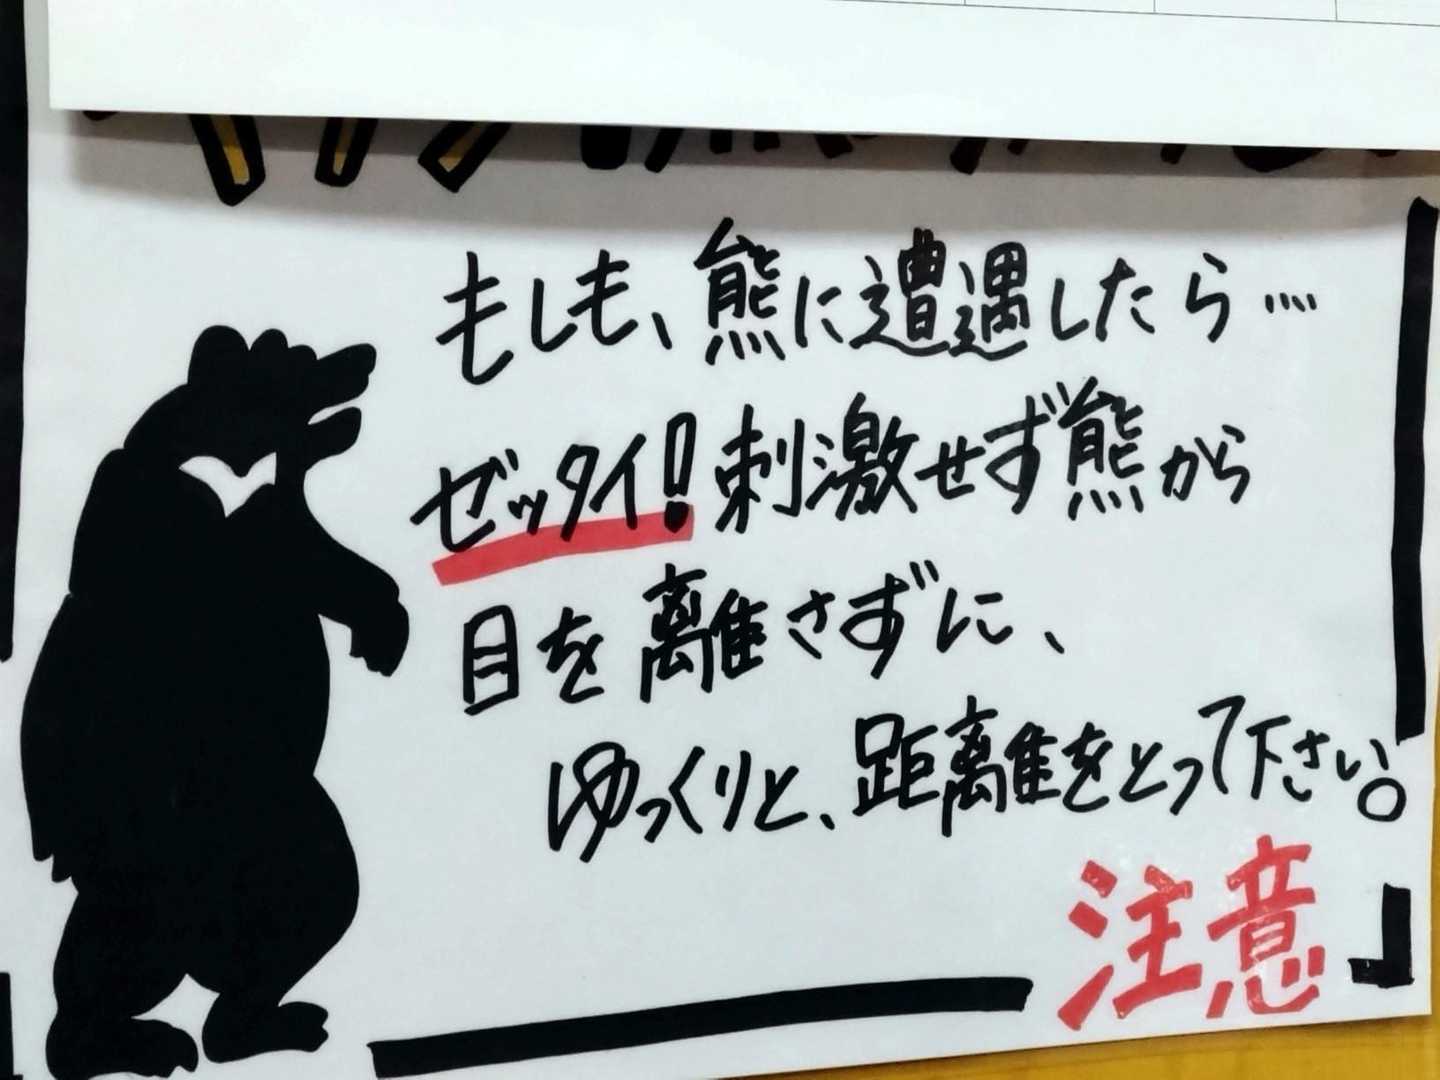 もしも、熊に遭遇したら…
ゼッタイ!刺激せず熊から
目を離さずに、
ゆっくりと、距離をとって下さい。
注意